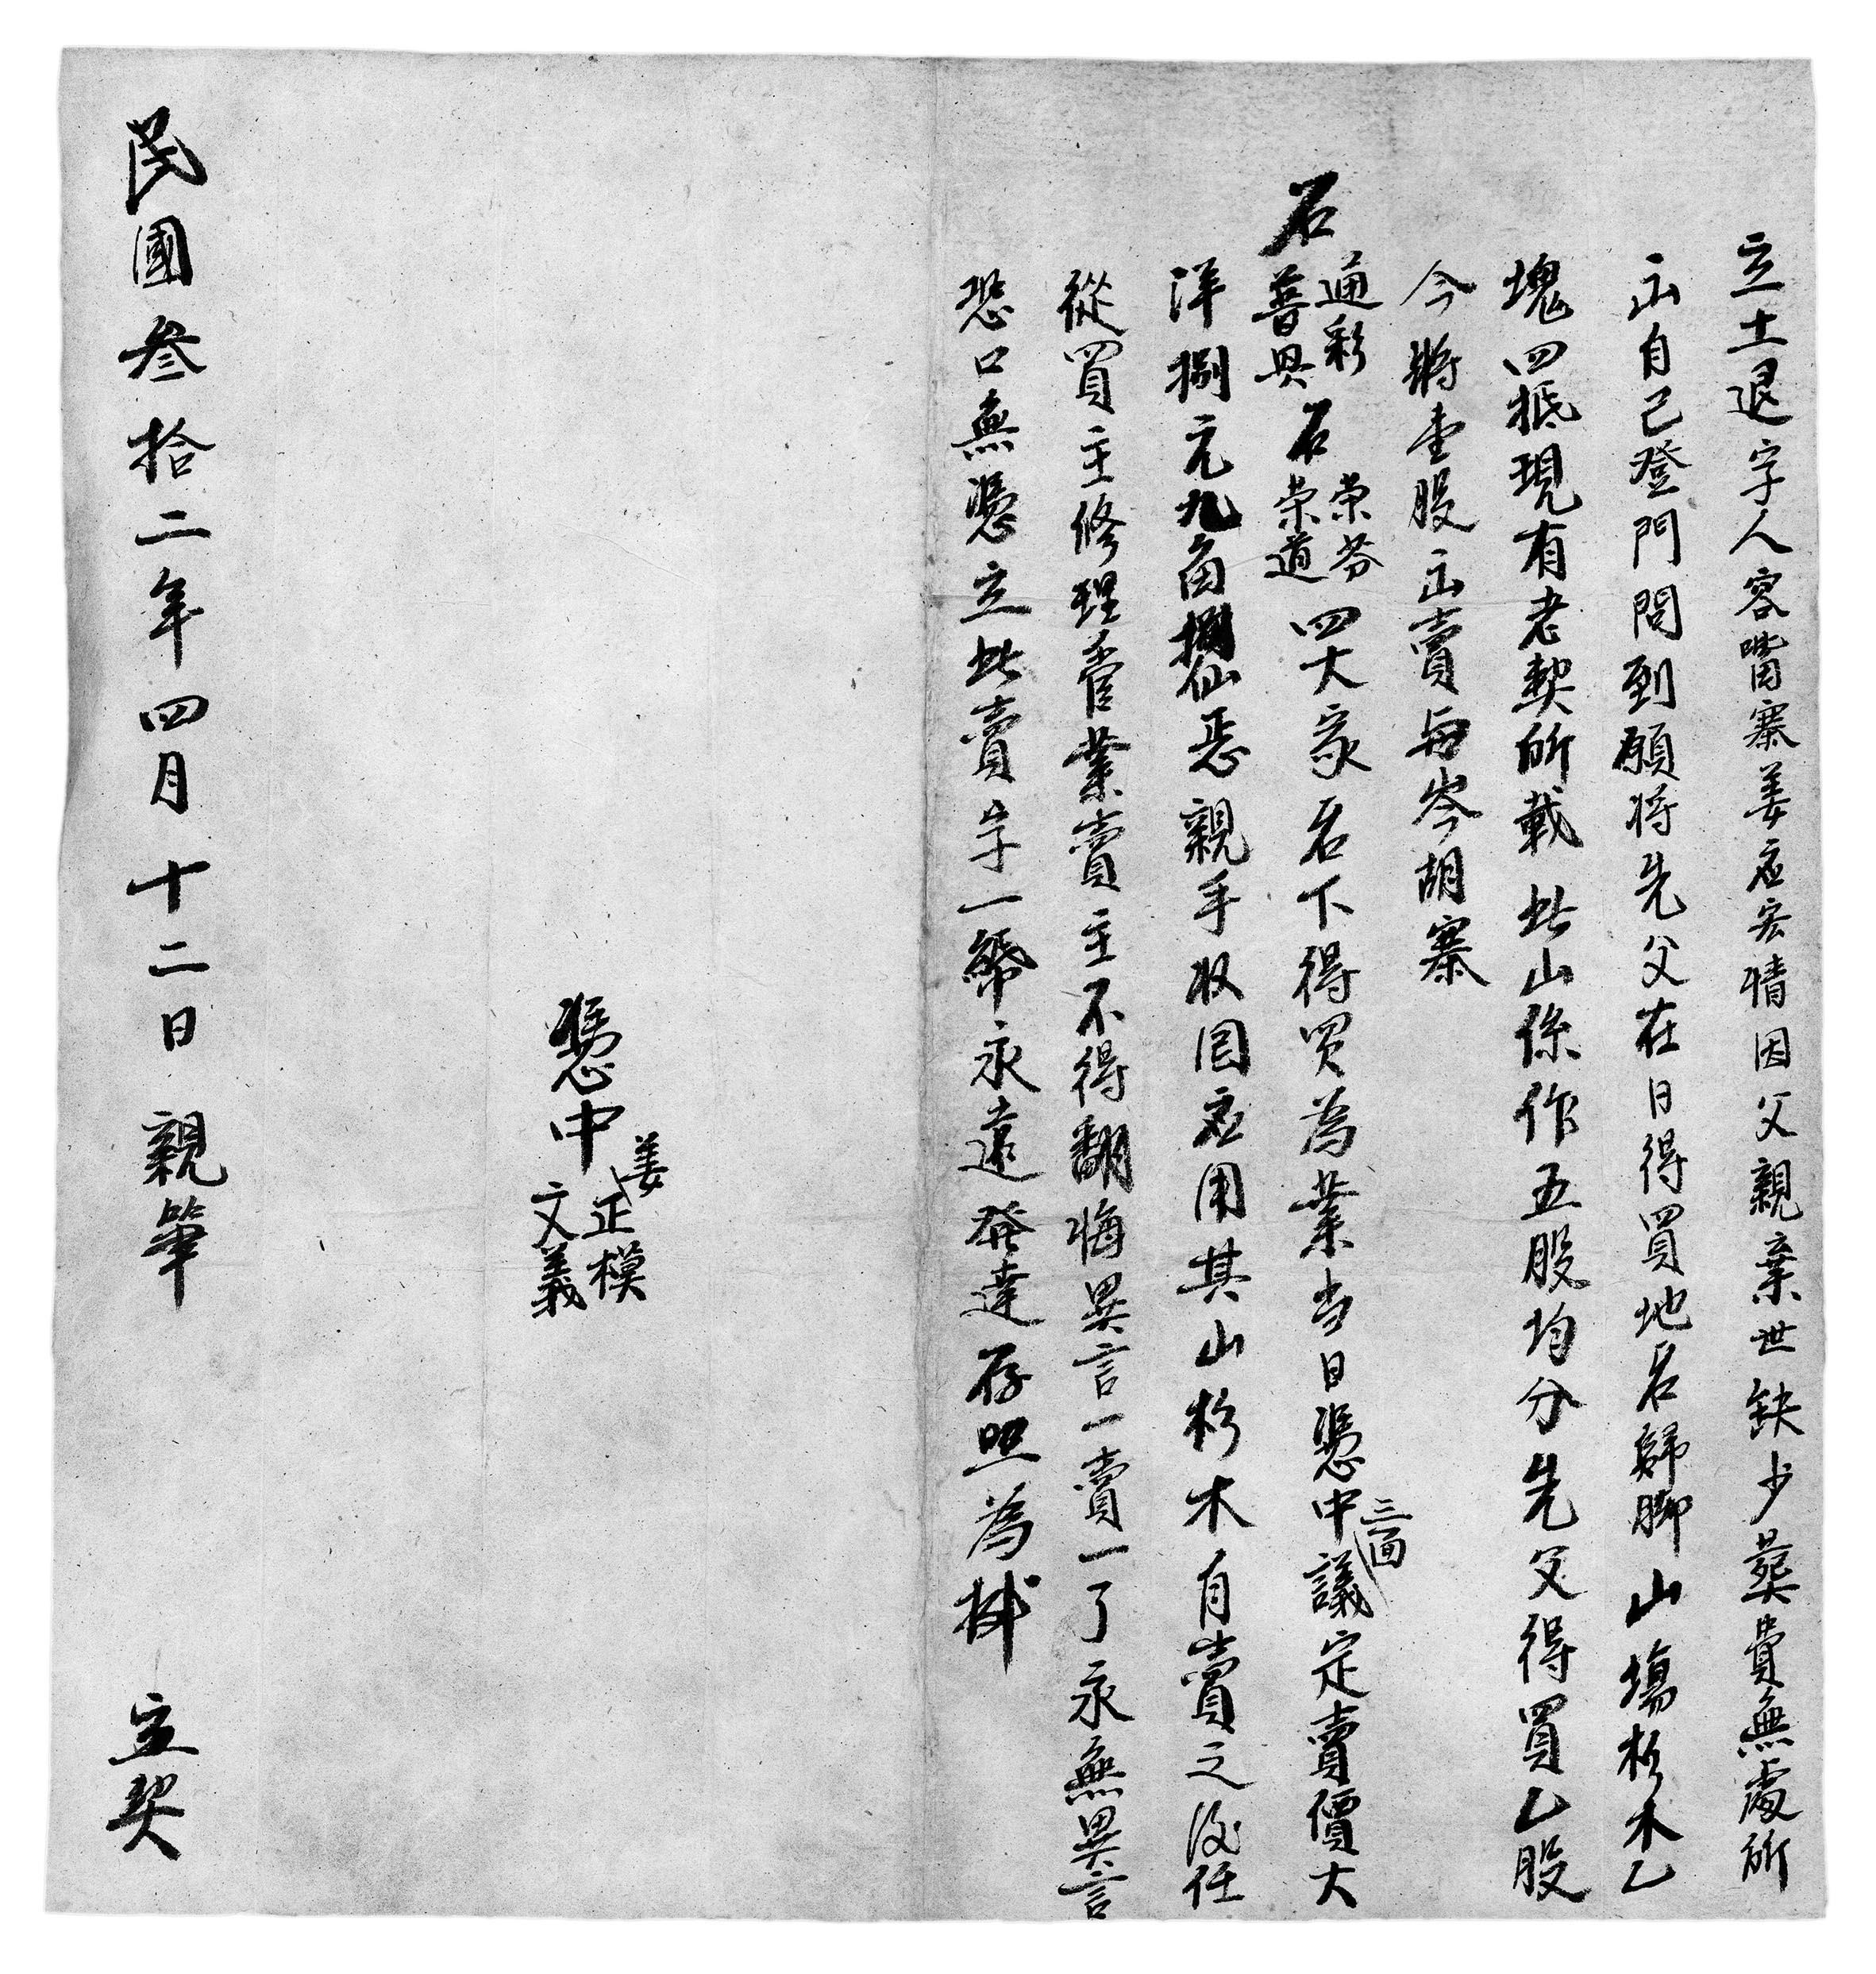 立土退字人容嘴寨姜在宏情因父親棄世缺少葬費無處所
出自己登門問到願將先父在日得買地名歸脚山塲杉木乙
塊四抵現有老契所載此山係作五股均分先父得買乙股
今將壹股出賣與岑胡寨
石通彩普興石荣芬荣道四大家名下得買為業当日憑中三面議定賣價大
洋捌元九角捌仙恶親手收回应用其山杉木自賣之後任
從買主修理管業賣主不得翻悔異言一賣一了永無異言
恐口無憑立此賣字一紙永遠發達存照為據
憑中姜正模
文義
民國叁拾二年四月十二日親筆立契